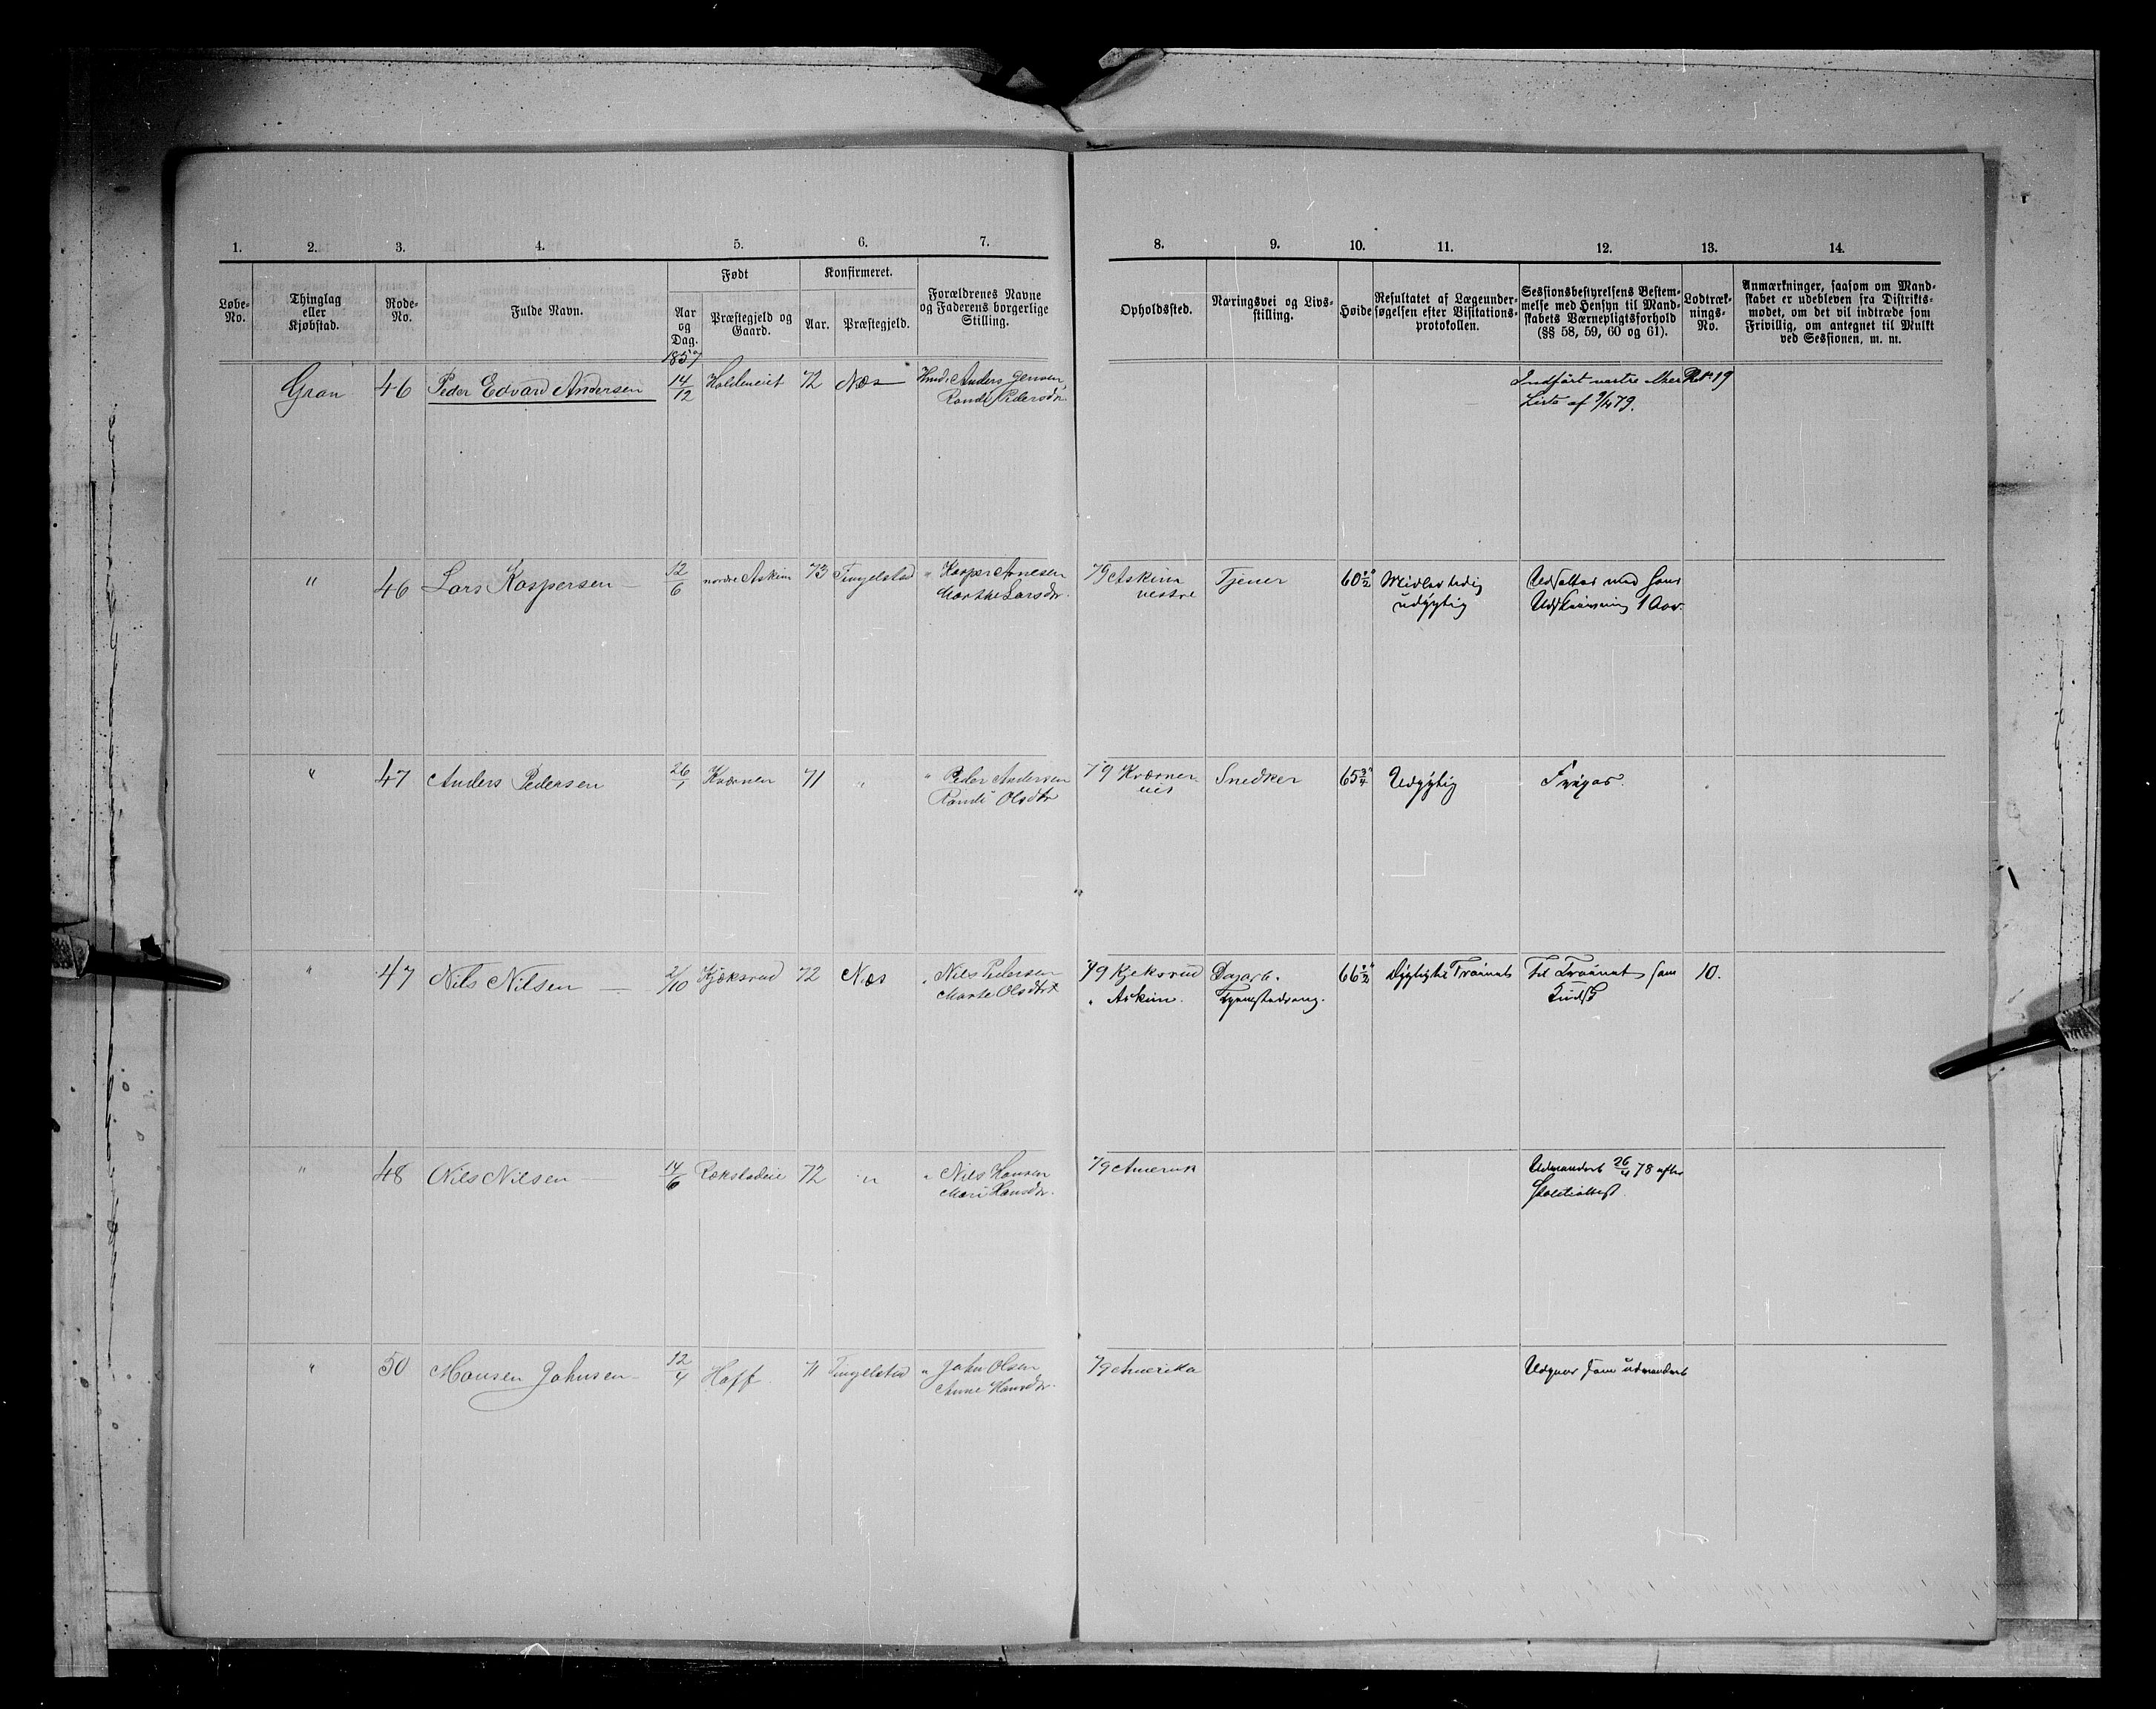 1. 2. 3. 4. 5. 6. 7. 8. 9. 10. 11. 12. 13. 14.
Løbe-
No.
Thinglag
eller
Kjøbstad.
Rode-
No.
Fulde Navn.
Født
Aar
og
Dag.
Præstegjeld og
Gaard.
Konfirmeret.
Aar.
Præstegjeld.
Forældrenes Navne
og Faderens borgerlige
Stilling.
Opholdssted.
Næringsvei og Livs-
stilling.
Høide
Resultatet af Lægeunder-
søgelsen efter Visitations-
protokollen.
Sessionsbestyrelsens Bestem-
melse med Hensyn til Mand-
skabets Værnepligtsforhold
(§§ 58, 59, 60 og 61).
Lodtræk-
nings-
No.
Anmærkninger, saasom om Mand-
skabet er udebleven fra Distrikts-
modet, om det vil indtræde som
Frivillig, om antegnet til Mulkt
ved Sessionen, m. m.
1857
Gran 46 Peder Edvard Andersen 14/12 Holdeneiet 72 Næs Anders Jensen Indført
Randi Pedersdtr. Liste af 9/4 79.
" 46 Lars Kaspersen 12/6 nordre Askim 73 Tingelstad " Kasper Arnesen 79 Askim Tjener 60 1/2" Midlertidig Udsættes med Hans
Marthe Larsdtr. vestre udygtig Udskrivning 1 Aar.
" 47 Anders Pedersen 26/1 Kværnen 71 " " Peder Andersen 79 Kværner Snedker 65 3/4" Udygtig Frigar.
Randi Olsdtr eie
" 47 Nils Nilsen 2/10 Kjæksrud 72 Næs " Nils Pedersen 79 Kjeksrud Dagarb. 66 1/2" Dygtig til Trainet Til Trainet som 10.
Marte Olsdtr " Askim. Kudsk
" 48 Nils Nilsen 14/6 Rækstadeie 72 " " Nils Hansen 79 Amerik Udvandret 26/4 78 efter
Mari Hansdtr. Politiattest.
" 50 Hansen Johnsen 12/4 Hoff 71 Tingelstad " John Olsen 79 Amerika Udgaar som udvandret
Anne Hansdtr.